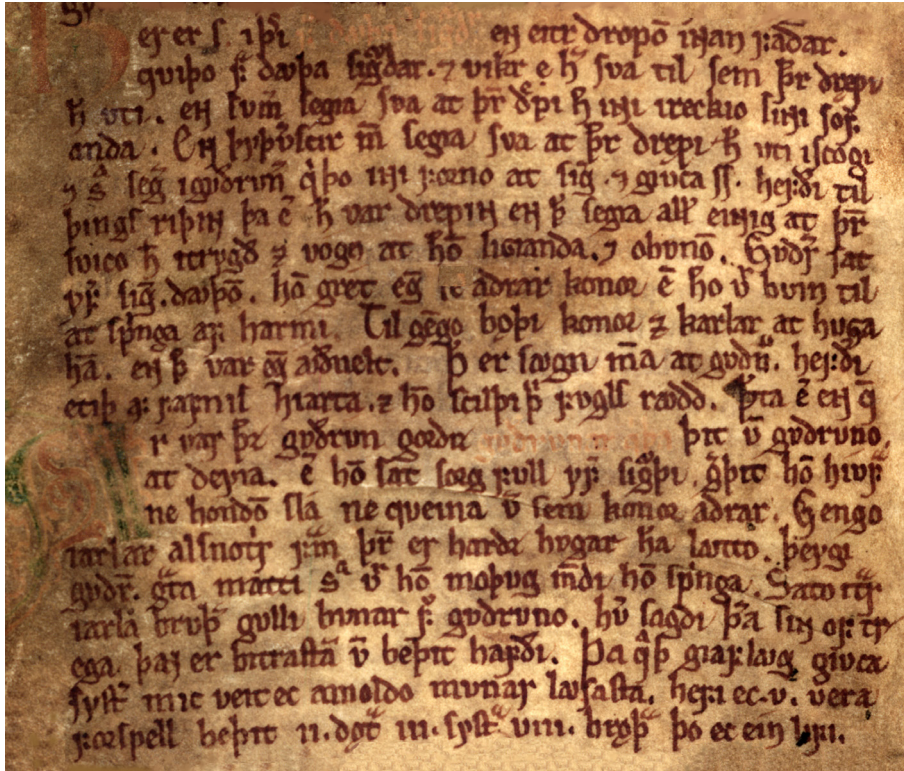 er er s. i þi en eitr dropō innan fádar.
qviþo f dꜹþa sigðar. ⁊ víkr e h̄ sva til sem þr drepi
h̄ vti. en svm̄ segia sva at þr dpi h̄ inni ireckio sinni sof
anda. En þyþvscir m̄ segia sva at þr drepi h̄ vti iscogi
⁊ sᵃ seg̅ igvðrvn̄ qþo inni forno at sig̅ ⁊ givca ss. hefði til
þings riþin þa ē h̄ var drepin en þ̅ segia all einnig at þr
svico h̄ itrygð ⁊ vogo at hō liɢianda. ⁊ obvnō. Gvðr sat
yf sig̅. dꜹþō. hō gret eg̅ adrar konor ē hō v̅ bvin til
at springa af harmi. Til gēgo boþi konor ⁊ karlar at hvga
hā. en þ̅ var aðvelt. Þ̅ er sꜹgn m̄a at gvðrv̅. hefði
etiþ af fafnis hiarta. ⁊ hō scilþi þ̅ fvgls rꜹdd. þta ē en q̅
r var þꝛ gvðrvn gorðiz þit v̅ gvðrvno.
at deyia. ē hō sat sorg fvll yf sigþi. gþit hō hivf
ne hondō slá ne qveina v̅ sem konor aðrar. Gengo
iarlar alsnotr f̅m þr er harðz hvgar h̅a lꜹtto. þeygi
gvðr̅. gᵃta matti sᵃ v̅ hō moþvg m̄di hō springa. Sato itr
iarla brvþ gvlli bvnar f gvðrvno. hv̅ sagdi þ̅a sin of tr
ega. þaɴ er bitrastā v̅ beþit hafði. Þa qþ giaflꜹg givca
systͬ mic veit ec amoldo mvnar lꜹsasta. hefi ec .v. vera
forspell beþit .ii. dot .iii. systͬ .viii. broþ þo ec ein lifi.